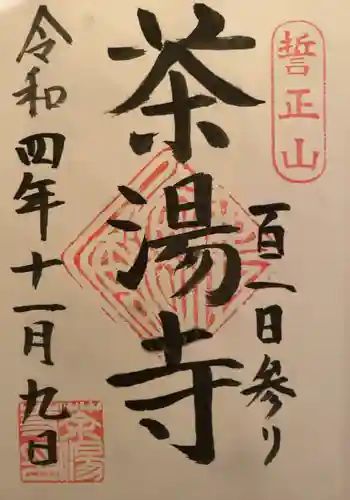 誓正山
百一日参り
茶湯寺
令和四年十一月九日